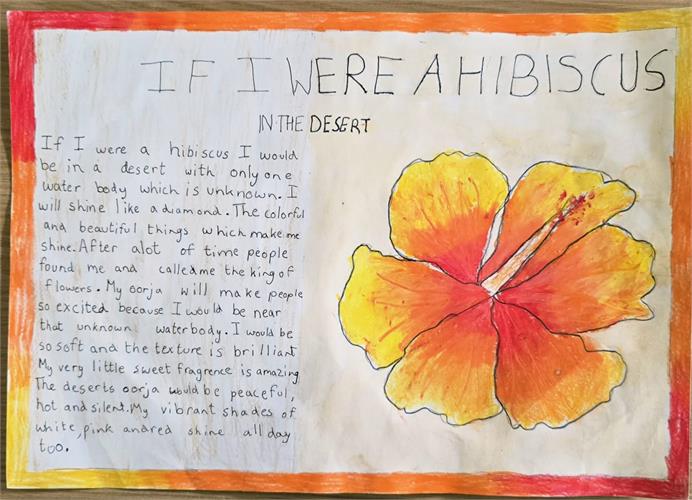 IF I WERE A HIBISCUS
IN THE DESERT
If I were a hibiscus I would
be in a desert with only one
water body which is unknown. I
will shine like a diamond. The colorful
and beautiful things which make me
shine. After alot of time people
found me and called me the king of
flowers. My oorja will make people
so excited because I would be near
that unknown waterbody. I would be
so soft and the texture is brilliant
My very little sweet fragrence is amazing
The deserts oorja would be peaceful,
hot and silent. My vibrant shades of
white, pink and red shine all day
too.